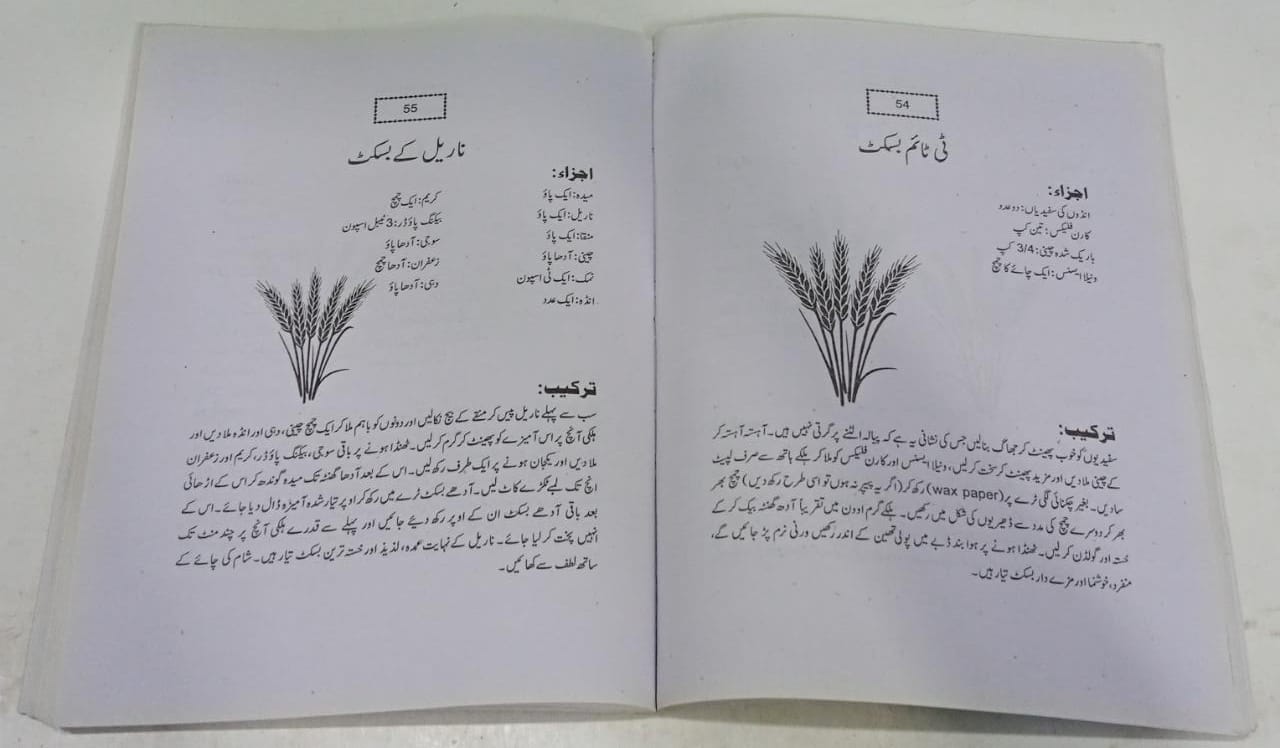 54
ٹی ٹائم بسکٹ
اجزاء:
انڈوں کی سفیدیاں: دو عدد
کارن فلیکس: تین کپ
باریک شدہ چینی: 3/4 کپ
ونیلا ایسنس: ایک چائے کا چمچ
ترکیب:
سفیدیوں کو خوب پھینٹ کر جھاگ بنالیں جس کی نشانی یہ ہے کہ پیالہ الٹنے پر گرتی نہیں ہیں۔ آہستہ آہستہ کر
کے چینی ملا دیں اور مزید پھینٹ کر سخت کر لیں، ونیلا ایسنس اور کارن فلیکس کو ملا کر ہلکے ہاتھ سے صرف لپیٹ
سا دیں۔ بغیر چکنائی لگی ٹرے پر (wax paper) رکھ کر (اگر یہ پیپر نہ ہوں تو اسی طرح رکھ دیں) چمچ بھر
بھر کر دوسرے چمچ کی مدد سے ڈھیریوں کی شکل میں رکھیں۔ ہلکے گرم اوون میں تقریباً آدھ گھنٹہ بیک کر کے
خستہ اور گولڈن کر لیں۔ ٹھنڈا ہونے پر ہوا بند ڈبے میں پولی تھین کے اندر رکھیں ورنی نرم پڑ جائیں گے،
منفرد، خوشنما اور مزے دار بسکٹ تیار ہیں۔
55
ناریل کے بسکٹ
اجزاء:
میدہ: ایک پاؤ
ناریل: ایک پاؤ
منقا: ایک پاؤ
چینی: آدھا پاؤ
نمک: ایک ٹی اسپون
انڈہ: ایک عدد
کریم: ایک چمچ
بیکنگ پاؤڈر: 3 ٹیبل اسپون
سوجی: آدھا پاؤ
زعفران: آدھا چمچ
دہی: آدھا پاؤ
ترکیب:
سب سے پہلے ناریل پیس کر منقے کے بیج نکالیں اور دونوں کو باہم ملا کر ایک چمچ چینی، دہی اور انڈہ ملا دیں اور
ہلکی آنچ پر اس آمیزے کو پھینٹ کر گرم کر لیں۔ ٹھنڈا ہونے پر باقی سوجی، بیکنگ پاؤڈر، کریم اور زعفران
ملا دیں اور یکجان ہونے پر ایک طرف رکھ لیں۔ اس کے بعد آدھا گھنٹہ تک میدہ گوندھ کر اس کے اڑھائی
انچ تک لمبے ٹکڑے کاٹ لیں۔ آدھے بسکٹ ٹرے میں رکھ کر اوپر تیار شدہ آمیزہ ڈال دیا جائے۔ اس کے
بعد باقی آدھے بسکٹ ان کے اوپر رکھ دیئے جائیں اور پہلے سے قدرے ہلکی آنچ پر چند منٹ تک
انہیں پخت کر لیا جائے۔ ناریل کے نہایت عمدہ، لذیذ اور خستہ ترین بسکٹ تیار ہیں۔ شام کی چائے کے
ساتھ لطف سے کھائیں۔